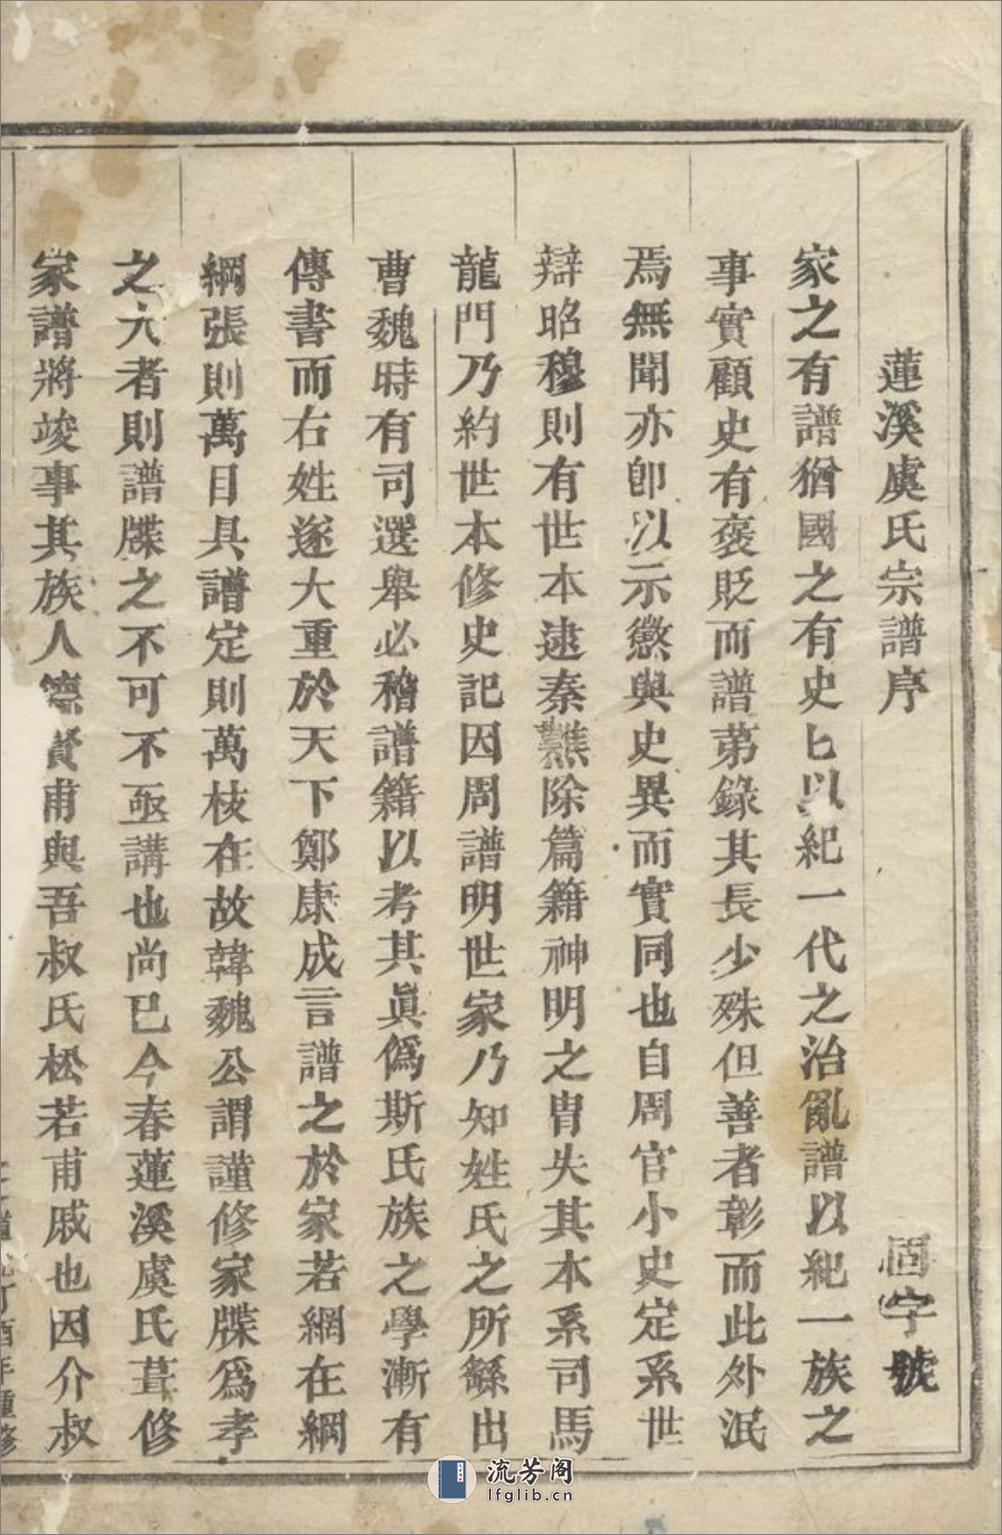 蓮溪虞氏宗譜序
固字號
家之有譜猶國之有史匕以紀一代之治亂譜以紀一族之
事實顧史有褒貶而譜苐錄其長少殊但善者彰而此外泯
焉無聞亦卽以示懲與史異而實同也自周官小史定系世
辯昭穆則有世本逮秦燹除篇籍神明之胄失其本系司馬
龍門乃約世本修史記因周譜明世家乃知姓氏之所繇出
曹魏時有司選舉必稽譜籍以考其眞僞斯氏族之學漸有
傳書而右姓遂大重於天下鄭康成言譜之於家若網在綱
綱張則萬目具譜定則萬枝在故韓魏公謂謹修家牒爲孝
之大者則譜牒之不可不亟講也尚已今春蓮溪虞氏葺修
家譜將竣事其族人德賢甫與吾叔氏松若甫戚也因介叔
酉年重修
流芳阁
lfglib.cn